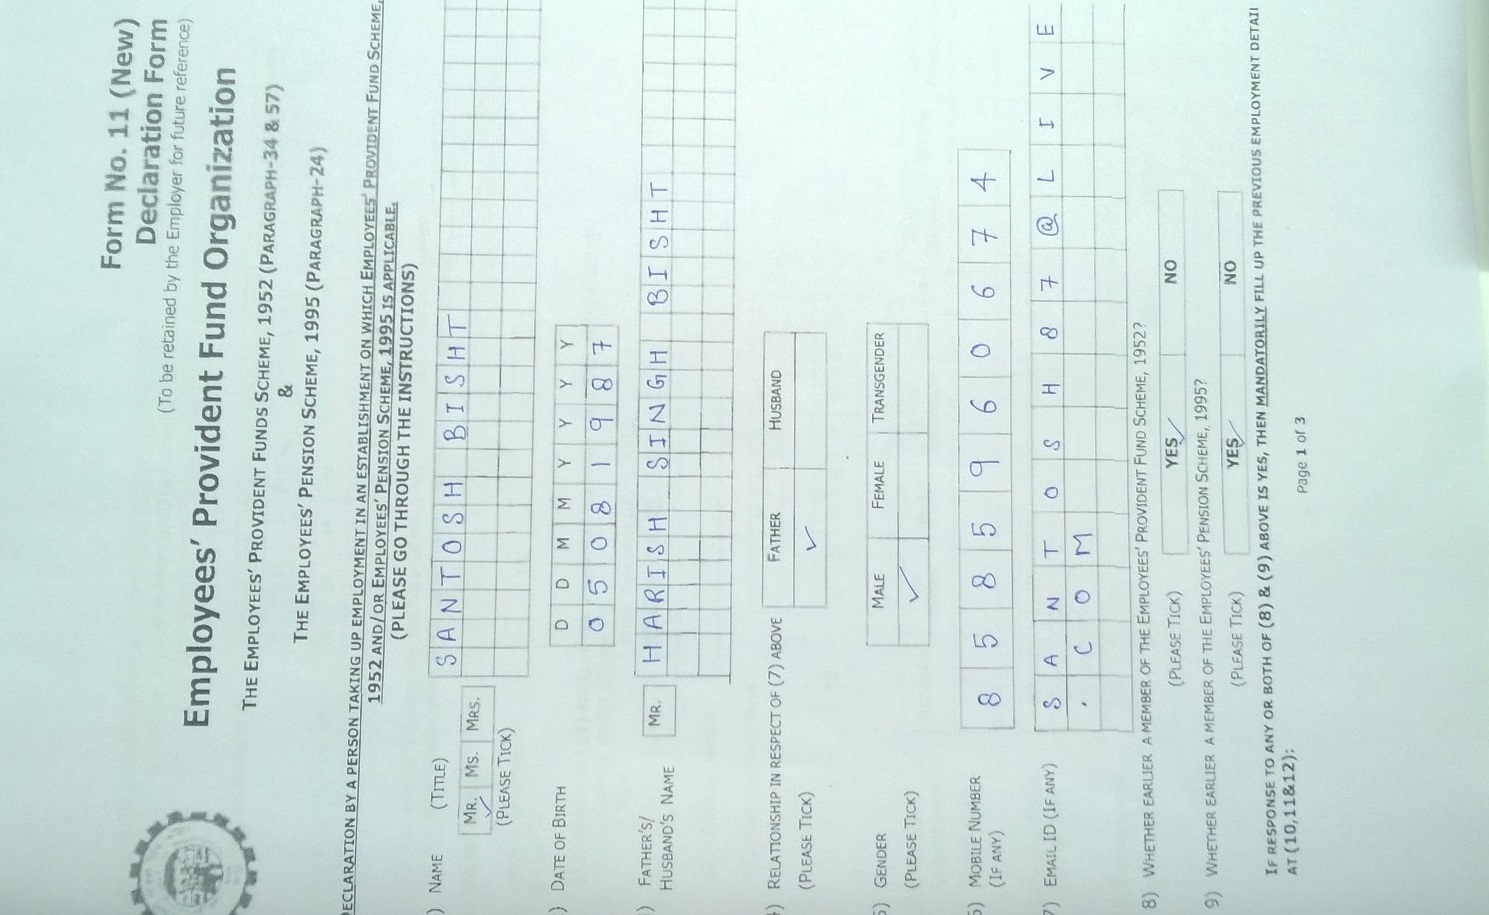 Form No. 11 (New)
Declaration Form
(To be retained by the Employer for future reference)
Employees' Provident Fund Organization
THE EMPLOYEES' PROVIDENT FUNDS SCHEME, 1952 (PARAGRAPH-34 & 57)
&
THE EMPLOYEES' PENSION SCHEME, 1995 (PARAGRAPH-24)
DECLARATION BY A PERSON TAKING UP EMPLOYMENT IN AN ESTABLISHMENT ON WHICH EMPLOYEES' PROVIDENT FUND SCHEME,
1952 AND/OR EMPLOYEES' PENSION SCHEME, 1995 IS APPLICABLE.
(PLEASE GO THROUGH THE INSTRUCTIONS)
) NAME (TITLE) SANTOSH BISHT
MR. MS. MRS.
(PLEASE TICK)
) DATE OF BIRTH D D M M Y Y Y Y
05081987
) FATHER'S/ HUSBAND'S NAME MR. HARISH SINGH BISHT
) RELATIONSHIP IN RESPECT OF (7) ABOVE FATHER HUSBAND
(PLEASE TICK) ✓
5) GENDER MALE FEMALE TRANSGENDER
(PLEASE TICK) ✓
5) MOBILE NUMBER 8585960674
(IF ANY)
7) EMAIL ID (IF ANY) SANTOSH87@LIVE
.COM
8) WHETHER EARLIER A MEMBER OF THE EMPLOYEES' PROVIDENT FUND SCHEME, 1952?
(PLEASE TICK) YES ✓ NO
9) WHETHER EARLIER A MEMBER OF THE EMPLOYEES' PENSION SCHEME, 1995?
(PLEASE TICK) YES ✓ NO
IF RESPONSE TO ANY OR BOTH OF (8) & (9) ABOVE IS YES, THEN MANDATORILY FILL UP THE PREVIOUS EMPLOYMENT DETAI
AT (10,11&12):
Page 1 of 3